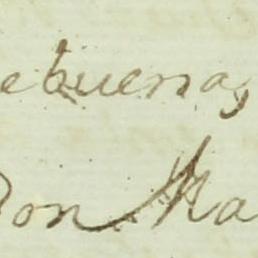 ebuena,
Don Ma